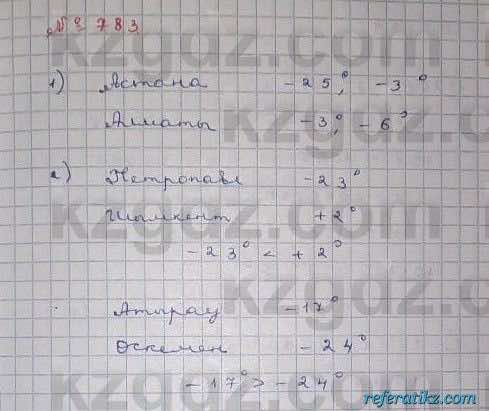 № 783
1) Астана -25°, -3°
Алматы -3°, -6°
2) Петропавл -23°
Шымкент +2°
-23° < +2°
Атырау -17°
Өскемен -24°
-17° > -24°
kzgdz.com
referatikz.com